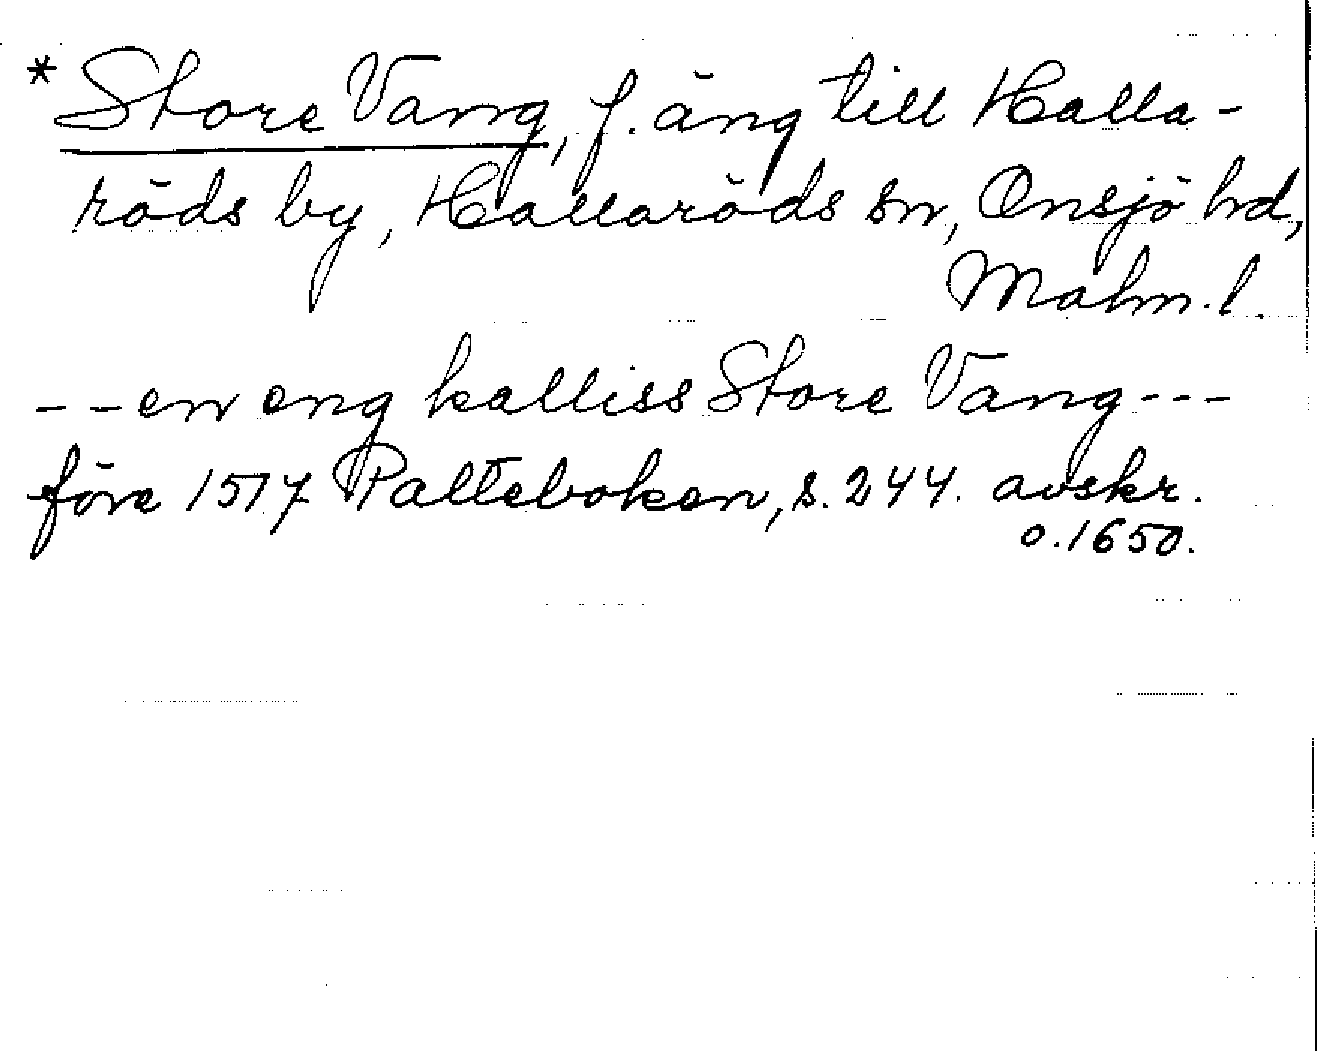 * Store Vang, f. äng till Halla-
röds by, Hallaröds sn, Onsjö hd,
Malm. l.
- - en eng kalliss Store Vang - - -
före 1517 Palteboken, s. 244. avskr.
o. 1650.